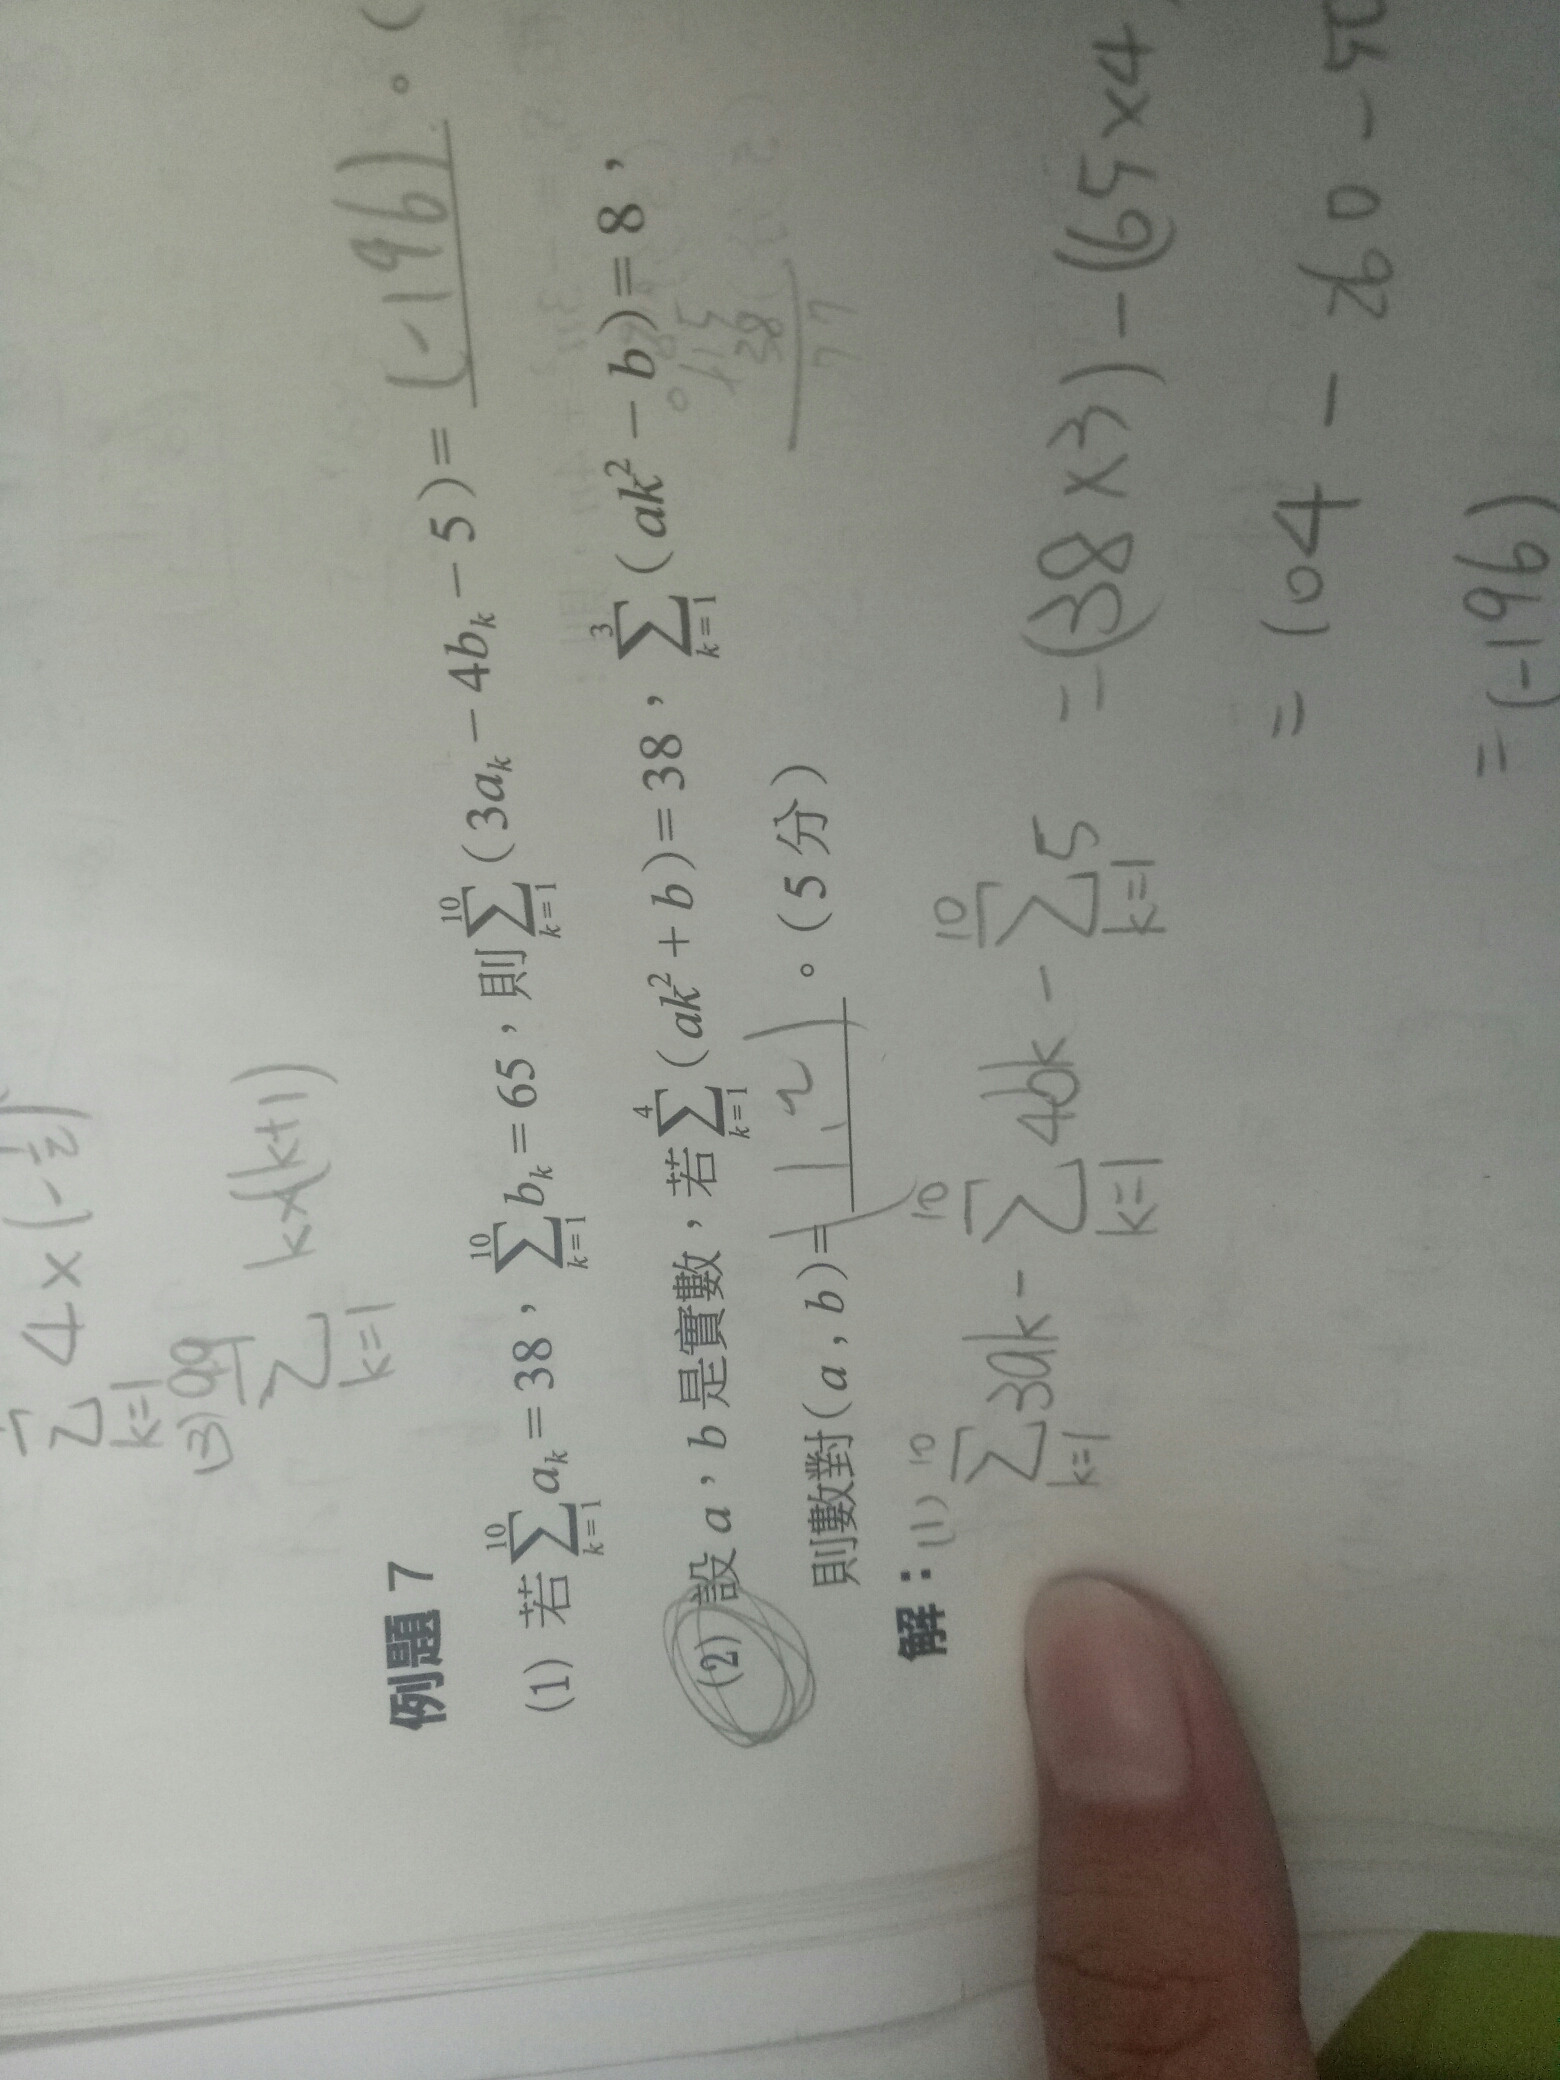 ∑ 4×(-1/2)
k=1
(3) 99
∑ k×(k+1)
k=1
例題 7
(1) 若 ∑_{k=1}^{10} a_k = 38，∑_{k=1}^{10} b_k = 65，則 ∑_{k=1}^{10} (3a_k − 4b_k − 5) = (-196)。(
(2) 設 a，b 是實數，若 ∑_{k=1}^{4} (ak² + b) = 38，∑_{k=1}^{3} (ak² − b) = 8，
則數對 (a, b) = (1,2)。(5 分)
38
77
解：(1) ∑_{k=1}^{10} 3ak - ∑_{k=1}^{10} 4bk - ∑_{k=1}^{10} 5 = (38×3) - (65×4
= 104 - 260 - 50
= (-196)